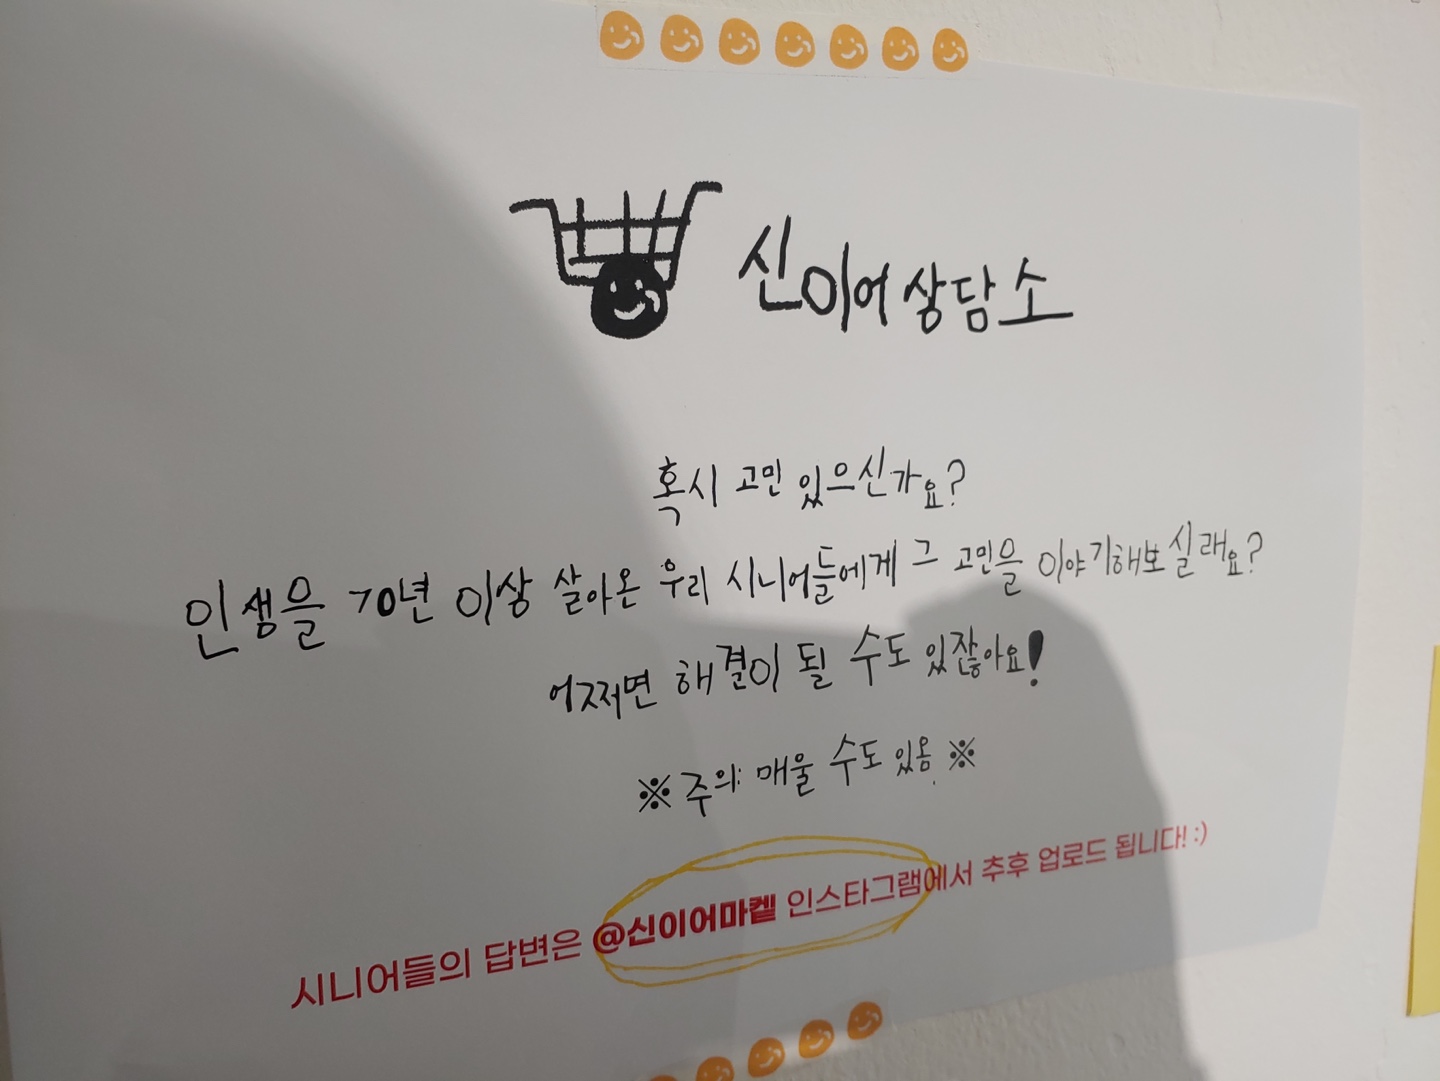 신이어 상담소
혹시 고민 있으신가요?
인생을 70년 이상 살아온 우리 시니어들에게 그 고민을 이야기해보실래요?
어쩌면 해결이 될 수도 있잖아요!
※ 주의: 매울 수도 있음 ※
시니어들의 답변은 @신이어마켙 인스타그램에서 추후 업로드 됩니다! :)